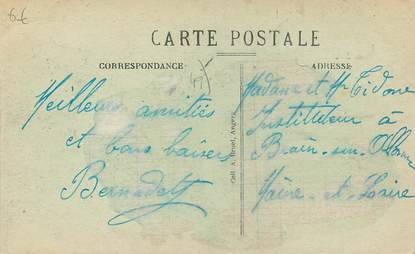 6€
CARTE POSTALE
CORRESPONDANCE
ADRESSE
Meilleures amitiés
et bons baisers
Bernadett
Coll. A. Bruel, Angers
Madame et Mr
Instituteur à
Brain-sur-
Maine-et-Loire